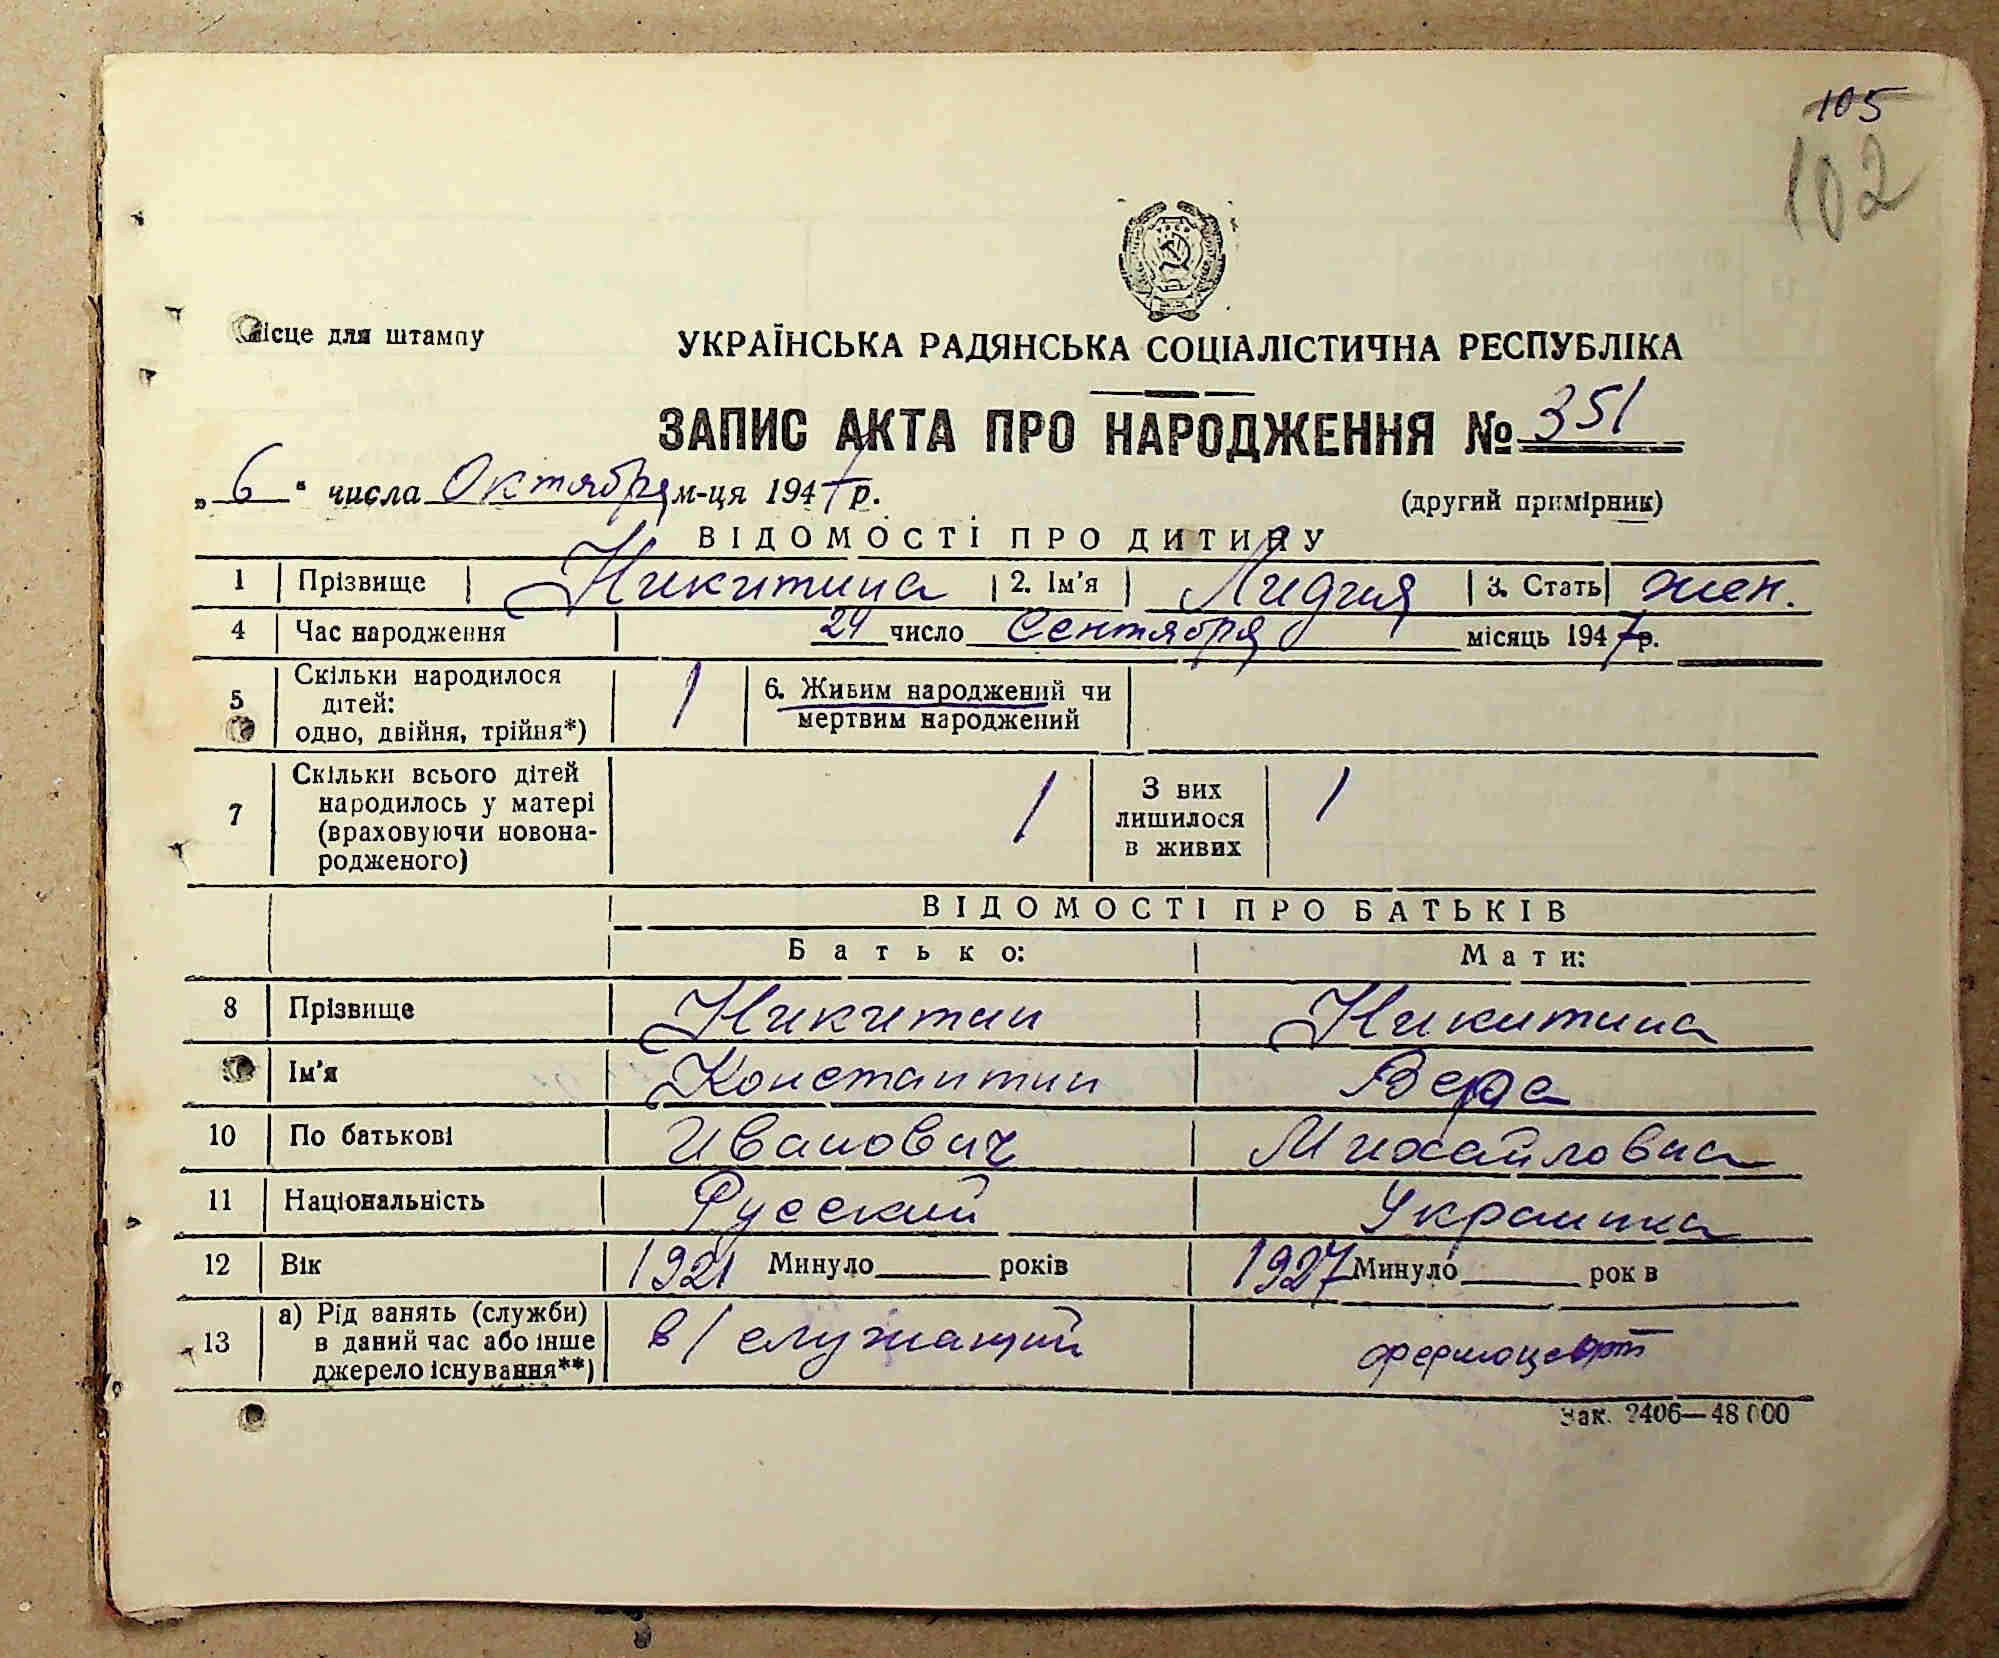 105
102
Місце для штампу
УКРАЇНСЬКА РАДЯНСЬКА СОЦІАЛІСТИЧНА РЕСПУБЛІКА
ЗАПИС АКТА ПРО НАРОДЖЕННЯ № 351
„6“ числа Октября м-ця 1947 р.
(другий примірник)
ВІДОМОСТІ ПРО ДИТИНУ
1 Прізвище Никитина 2. Ім'я Лидия 3. Стать жен.
4 Час народження 24 число Сентября місяць 1947 р.
5 Скільки народилося дітей: одно, двійня, трійня*) 1 6. Живим народжений чи мертвим народжений
7 Скільки всього дітей народилось у матері (враховуючи новонародженого) 1 З них лишилося в живих 1
ВІДОМОСТІ ПРО БАТЬКІВ
Батько: Мати:
8 Прізвище Никитин Никитина
Ім'я Константин Вера
10 По батькові Иванович Михайловна
11 Національність Русский Украинка
12 Вік 1921 Минуло років 1927 Минуло рок в
13 а) Рід занять (служби) в даний час або інше джерело існування**) в/служащий
Зак. 2406—48 000